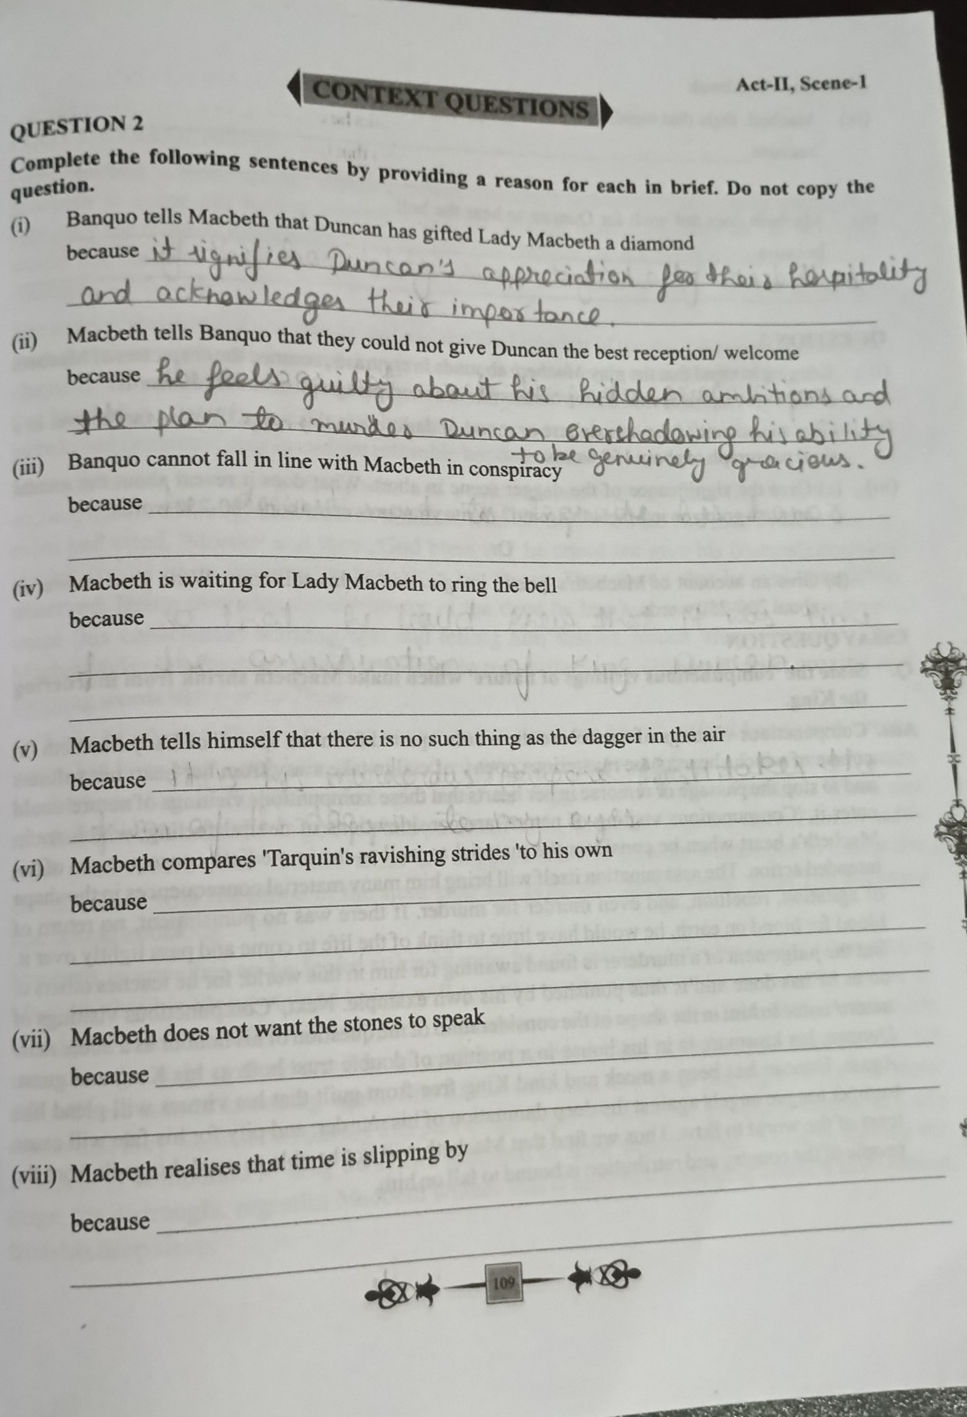 CONTEXT QUESTIONS
Act-II, Scene-1
QUESTION 2
Complete the following sentences by providing a reason for each in brief. Do not copy the
question.
(i) Banquo tells Macbeth that Duncan has gifted Lady Macbeth a diamond
because it signifies Duncan's appreciation for their hospitality
and acknowledges their importance.
(ii) Macbeth tells Banquo that they could not give Duncan the best reception/ welcome
because he feels guilty about his hidden ambitions and
the plan to murder Duncan overshadowing his ability
to be genuinely gracious.
(iii) Banquo cannot fall in line with Macbeth in conspiracy
because
(iv) Macbeth is waiting for Lady Macbeth to ring the bell
because
(v) Macbeth tells himself that there is no such thing as the dagger in the air
because
(vi) Macbeth compares 'Tarquin's ravishing strides 'to his own
because
(vii) Macbeth does not want the stones to speak
because
(viii) Macbeth realises that time is slipping by
because
109